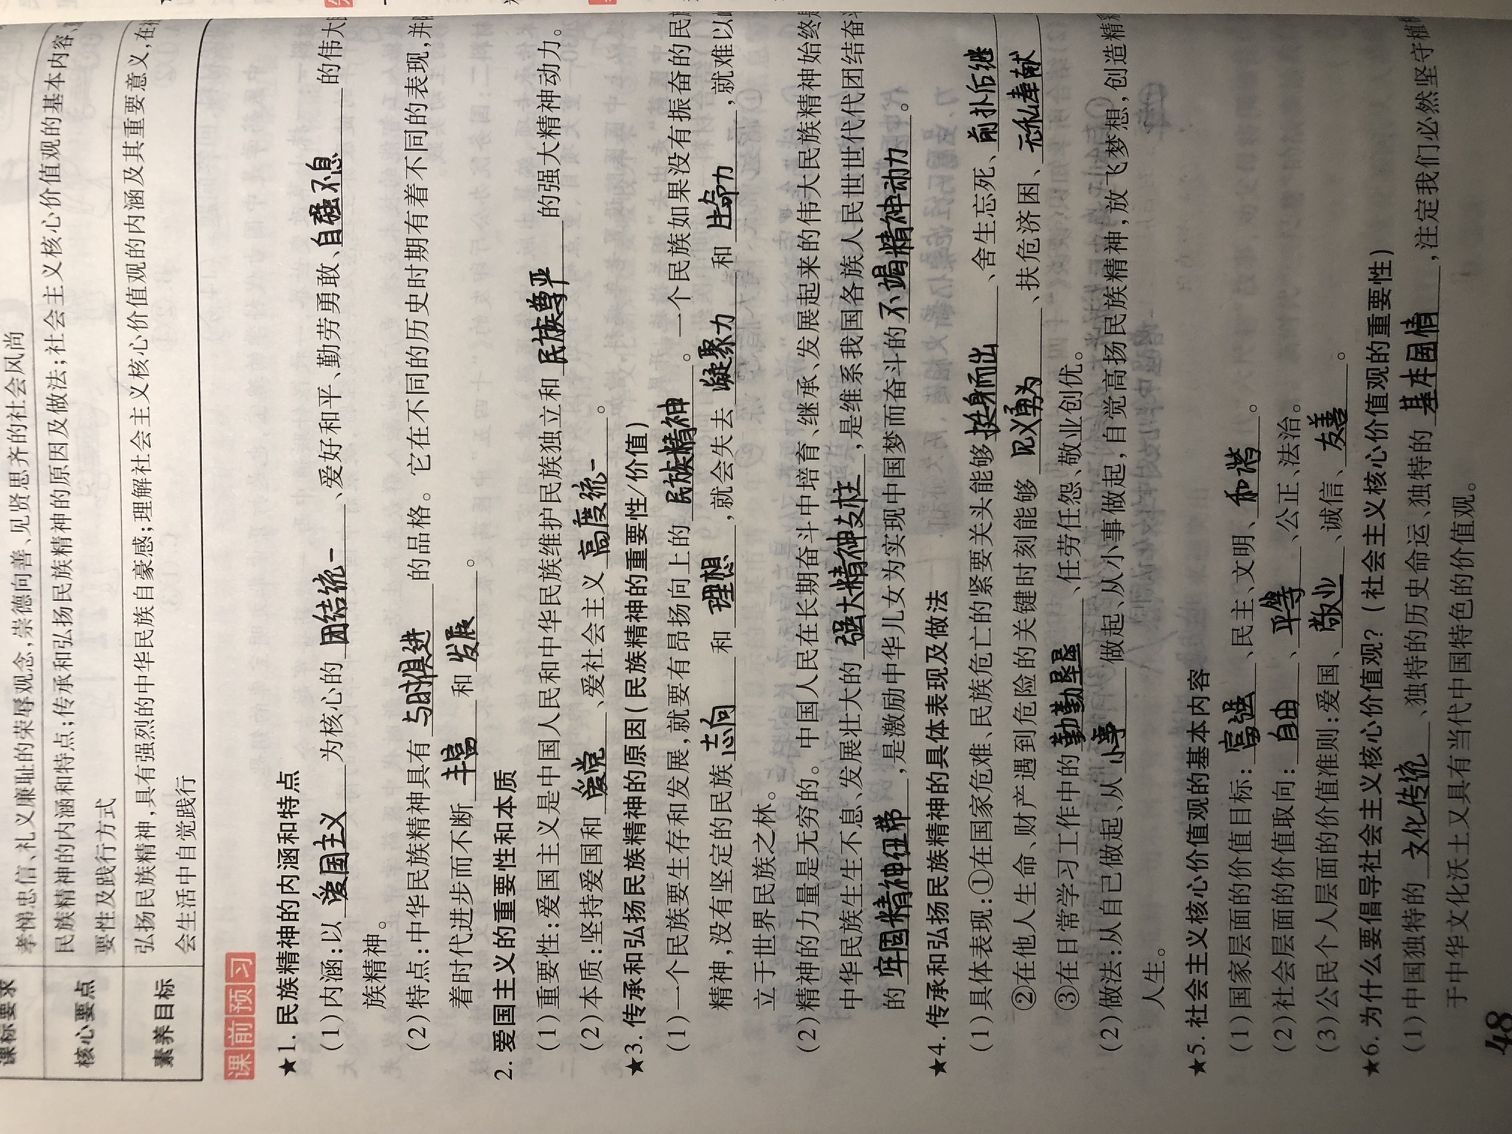 课标要求
孝悌忠信、礼义廉耻的荣辱观念,崇德向善、见贤思齐的社会风尚
核心要点
民族精神的内涵和特点;传承和弘扬民族精神的原因及做法;社会主义核心价值观的基本内容、
要性及践行方式
素养目标
弘扬民族精神,具有强烈的中华民族自豪感;理解社会主义核心价值观的内涵及其重要意义,在
会生活中自觉践行
课前预习
★1. 民族精神的内涵和特点
(1)内涵:以 爱国主义 为核心的 团结统一 、爱好和平、勤劳勇敢、自强不息 的伟大
族精神。
(2)特点:中华民族精神具有 与时俱进 的品格。它在不同的历史时期有着不同的表现,并
着时代进步而不断 丰富 和 发展 。
2. 爱国主义的重要性和本质
(1)重要性:爱国主义是中国人民和中华民族维护民族独立和 民族尊严 的强大精神动力。
(2)本质:坚持爱国和 爱党 、爱社会主义 高度统一 。
★3. 传承和弘扬民族精神的原因(民族精神的重要性/价值)
(1)一个民族要生存和发展,就要有昂扬向上的 民族精神 。一个民族如果没有振奋的民
精神,没有坚定的民族 志向 和 理想 ,就会失去 凝聚力 和 生命力 ,就难以
立于世界民族之林。
(2)精神的力量是无穷的。中国人民在长期奋斗中培育、继承、发展起来的伟大民族精神始终
中华民族生生不息、发展壮大的 强大精神支柱 ,是维系我国各族人民世世代代团结奋
的 牢固精神纽带 ,是激励中华儿女为实现中国梦而奋斗的 不竭精神动力 。
★4. 传承和弘扬民族精神的具体表现及做法
(1)具体表现:①在国家危难、民族危亡的紧要关头能够 挺身而出 、舍生忘死、前扑后继
②在他人生命、财产遇到危险的关键时刻能够 见义勇为 、扶危济困、无私奉献
③在日常学习工作中的 勤勤垦垦 、任劳任怨、敬业创优。
(2)做法:从自己做起、从 小事 做起、从小事做起,自觉高扬民族精神,放飞梦想,创造精
人生。
★5. 社会主义核心价值观的基本内容
(1)国家层面的价值目标: 富强 、民主、文明、 和谐 。
(2)社会层面的价值取向: 自由 、 平等 、公正、法治。
(3)公民个人层面的价值准则:爱国、 敬业 、诚信、 友善 。
★6. 为什么要倡导社会主义核心价值观?(社会主义核心价值观的重要性)
(1)中国独特的 文化传统 、独特的历史命运、独特的 基本国情 ,注定我们必然坚守植
于中华文化沃土又具有当代中国特色的价值观。
48